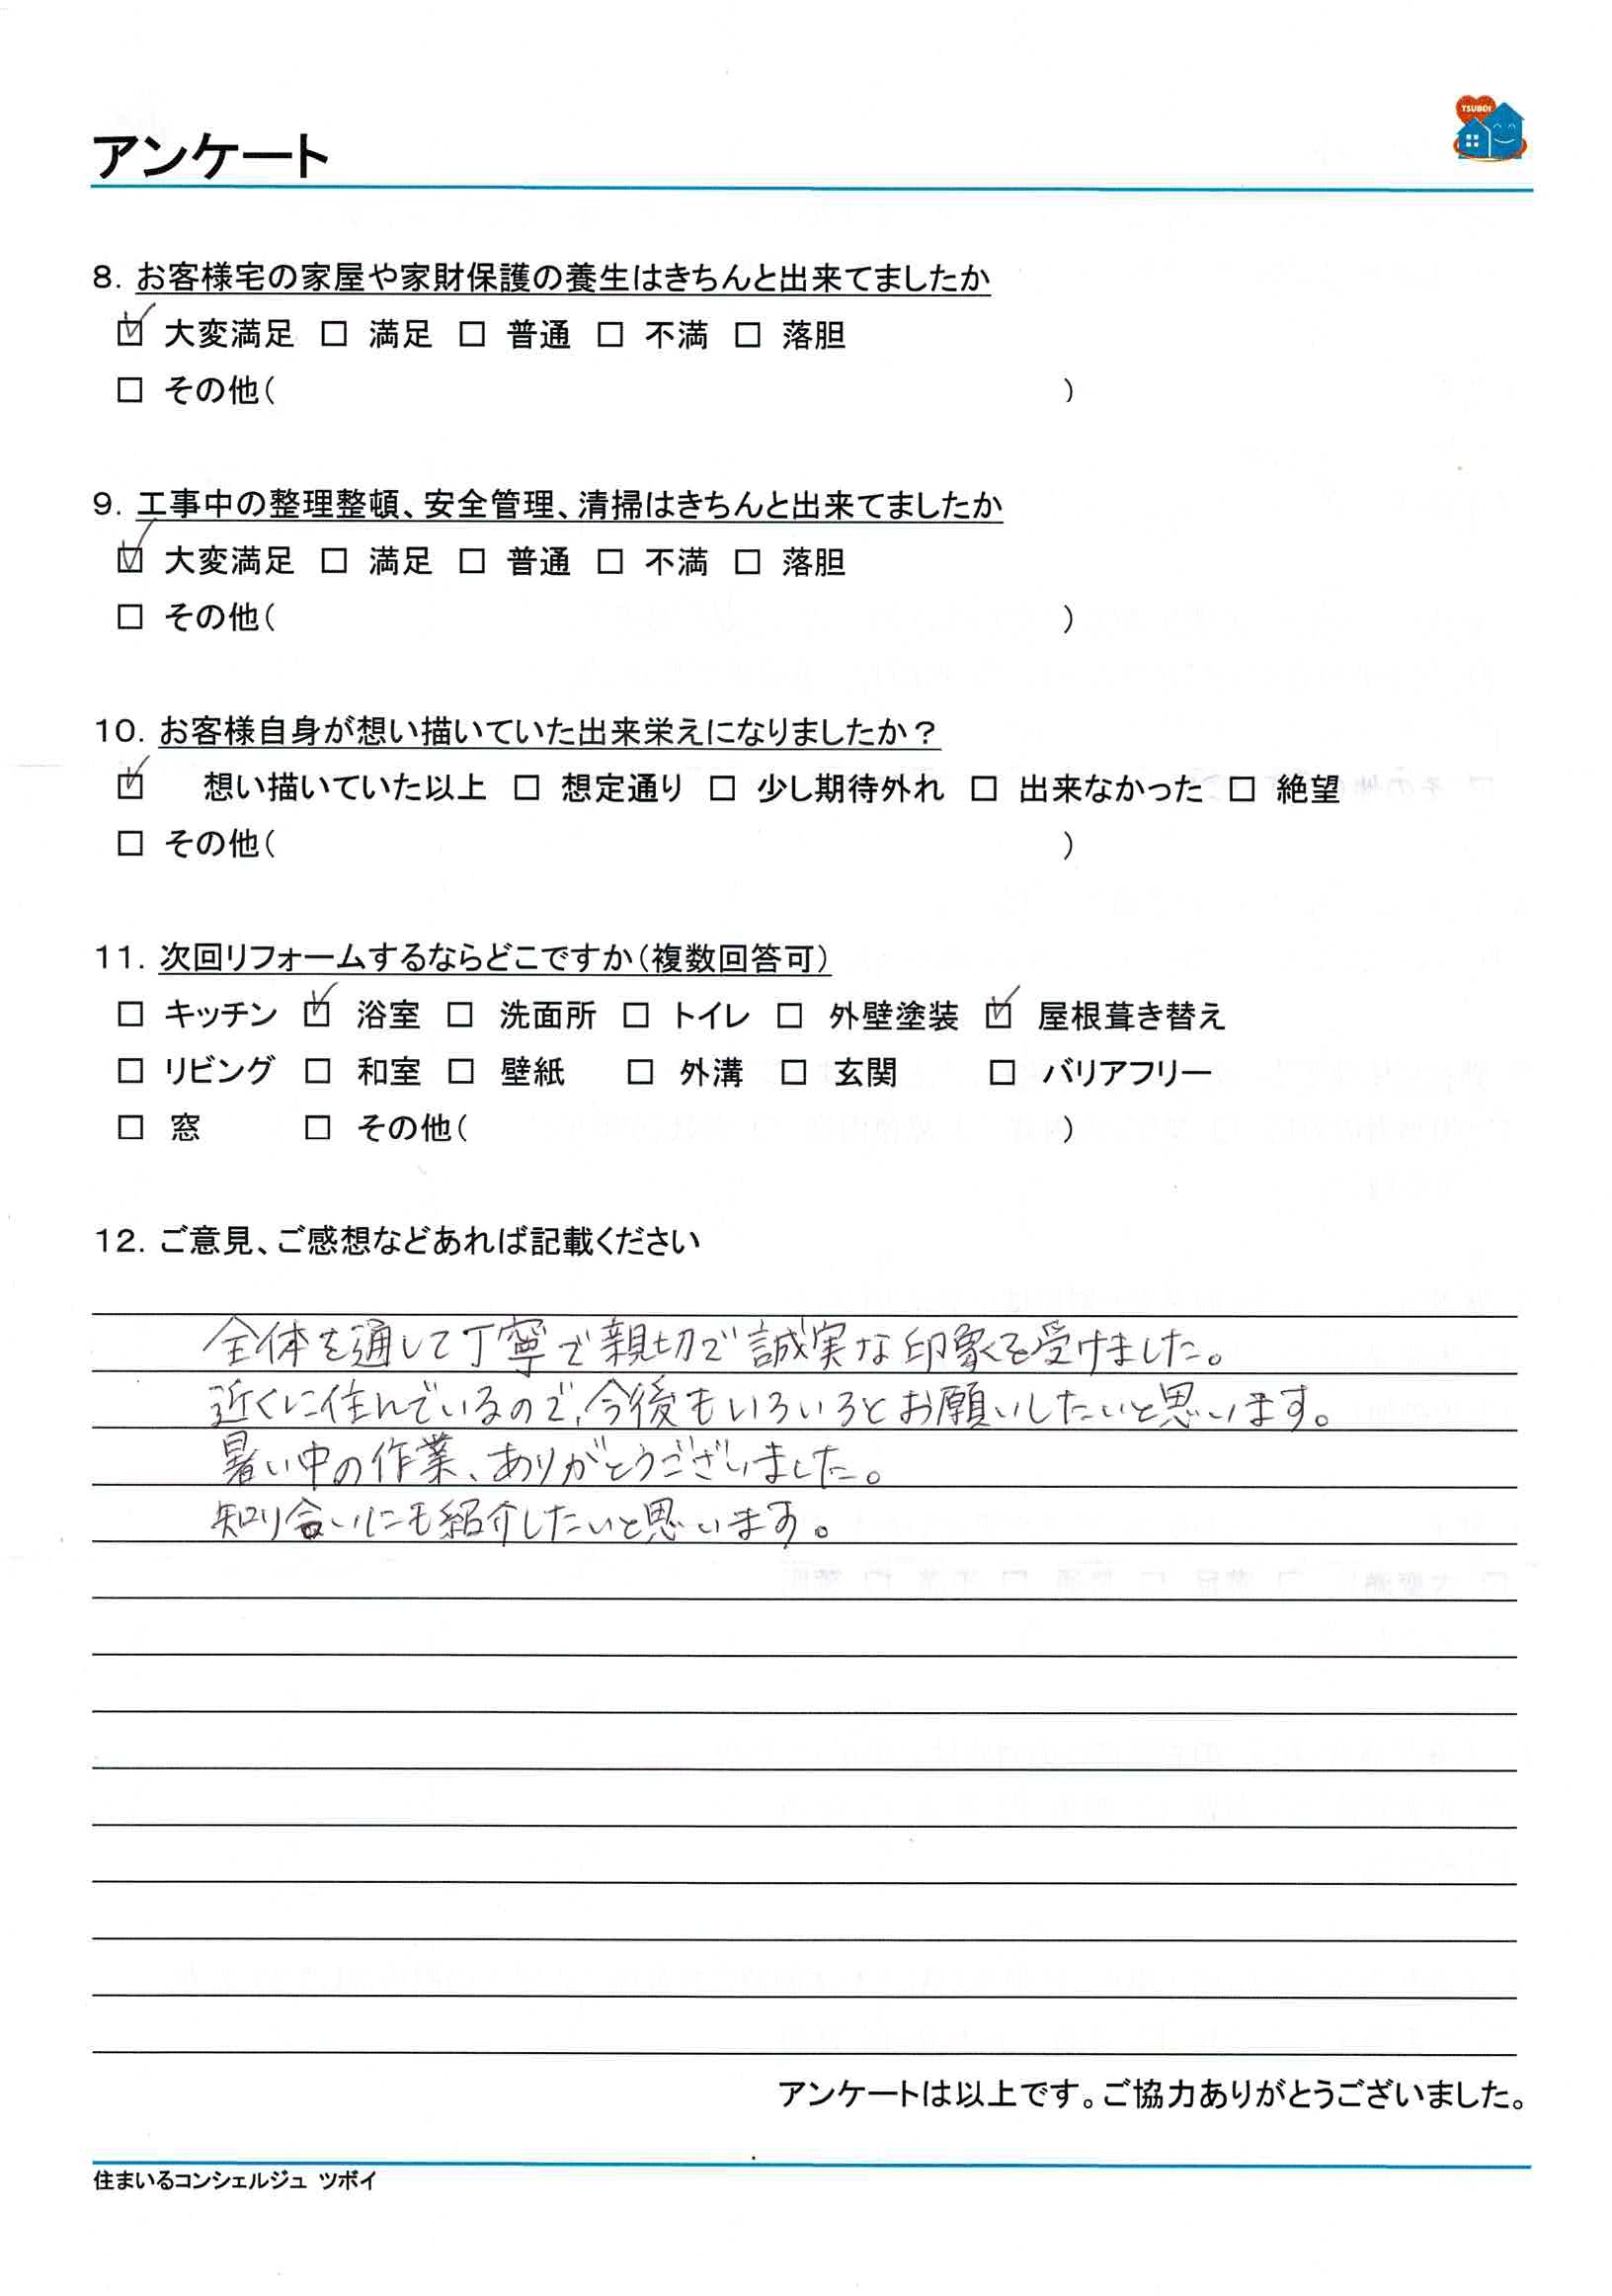 TSUBOI
アンケート
8. お客様宅の家屋や家財保護の養生はきちんと出来てましたか
☑ 大変満足 □ 満足 □ 普通 □ 不満 □ 落胆
□ その他( )
9. 工事中の整理整頓、安全管理、清掃はきちんと出来てましたか
☑ 大変満足 □ 満足 □ 普通 □ 不満 □ 落胆
□ その他( )
10. お客様自身が想い描いていた出来栄えになりましたか?
☑ 想い描いていた以上 □ 想定通り □ 少し期待外れ □ 出来なかった □ 絶望
□ その他( )
11. 次回リフォームするならどこですか(複数回答可)
□ キッチン ☑ 浴室 □ 洗面所 □ トイレ □ 外壁塗装 ☑ 屋根葺き替え
□ リビング □ 和室 □ 壁紙 □ 外溝 □ 玄関 □ バリアフリー
□ 窓 □ その他( )
12. ご意見、ご感想などあれば記載ください
全体を通して丁寧で親切で誠実な印象を受けました。
近くに住んでいるので、今後もいろいろとお願いしたいと思います。
暑い中の作業、ありがとうございました。
知り合いにも紹介したいと思います。
アンケートは以上です。ご協力ありがとうございました。
住まいるコンシェルジュ ツボイ